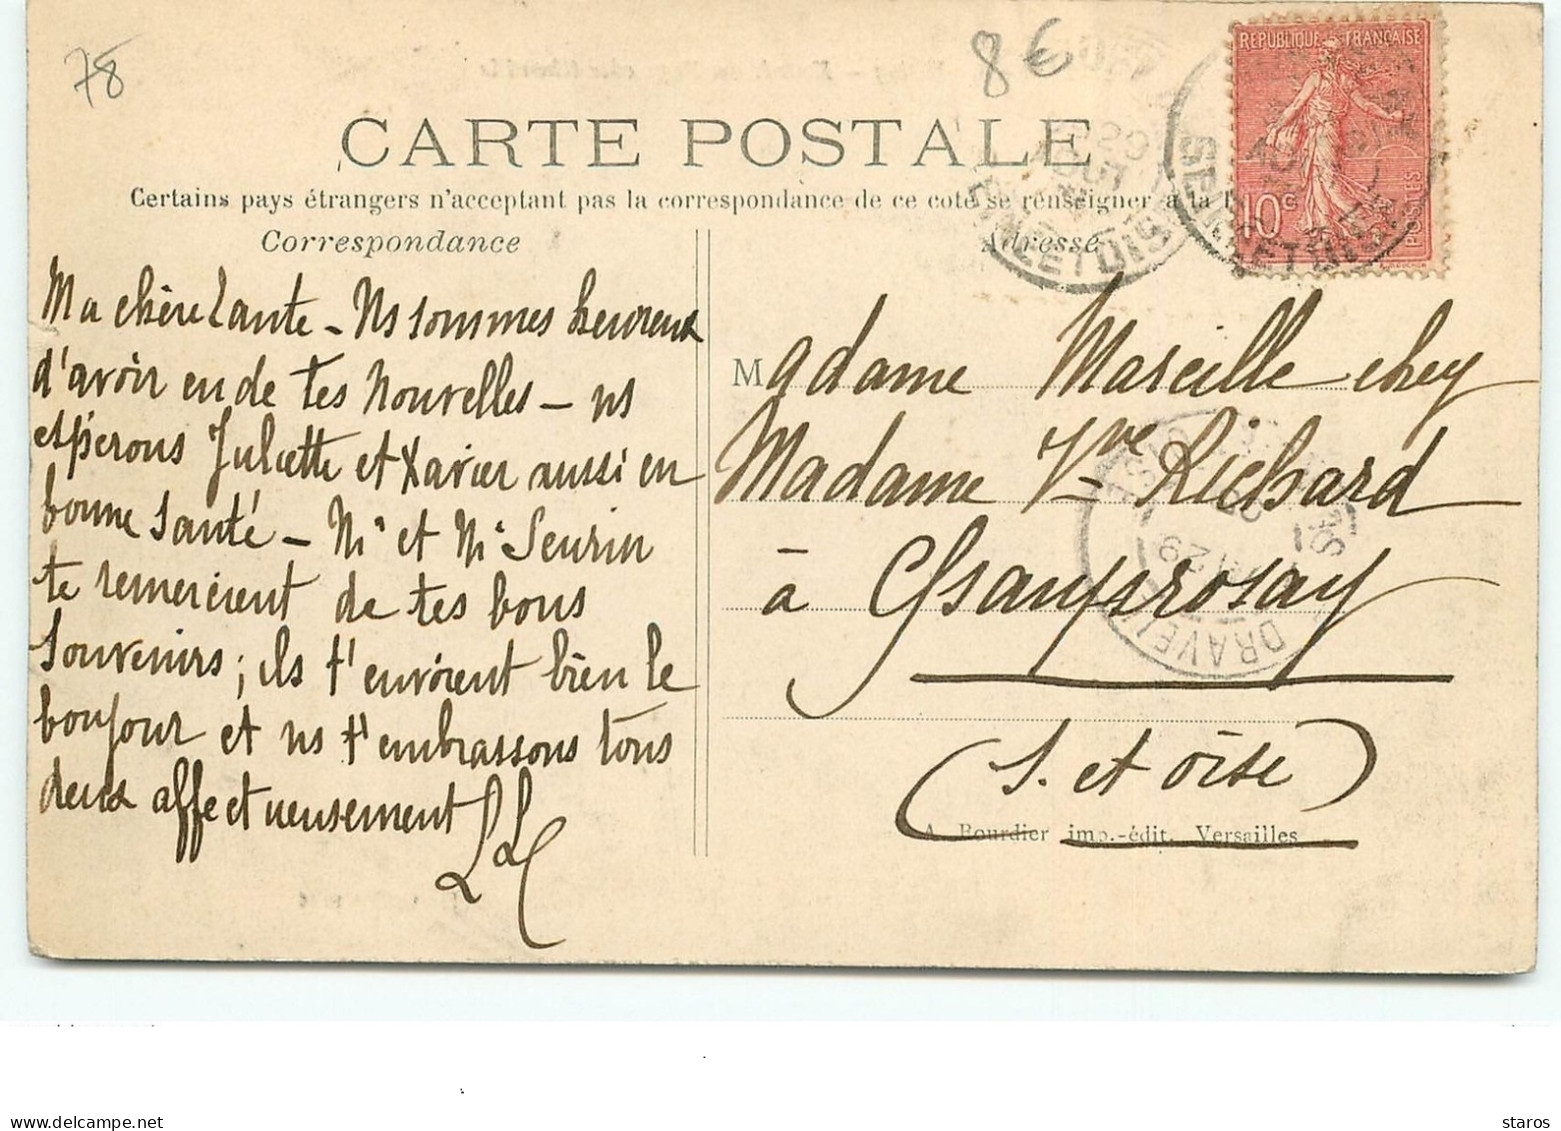 78
8€
CARTE POSTALE
Certains pays étrangers n'acceptant pas la correspondance de ce coté se renseigner à la
Correspondance
Adresse
REPUBLIQUE FRANÇAISE
10c
POSTES
SEINE ET OISE
Ma chère tante – Ns sommes heureux
d'avoir eu de tes nouvelles – ns
espérons Juliette et Xavier aussi en
bonne santé – Mr et Me Seurin
te remercient de tes bons
souvenirs ; ils t'envoient bien le
bonjour et ns t'embrassons tous
deux affectueusement
Madame Marcille chez
Madame Vve Richard
à Champrosay
(S. et Oise)
DRAVEIL
A. Bourdier imp.-édit. Versailles
delcampe.net
staros